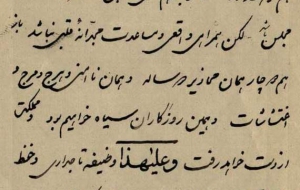 مجلس باشد لکن همراهی واقعی و مساعدت مجدّانهٔ قلبی نباشد باز
هم دچار همان محاذیر هر ساله و همان ناامنی و هرج و مرج و
اغتشاشات و همین روزگاران سیاه خواهیم بود و مملکت
از دست خواهد رفت و علیهذا وظیفهٔ تاجداری و حفظ